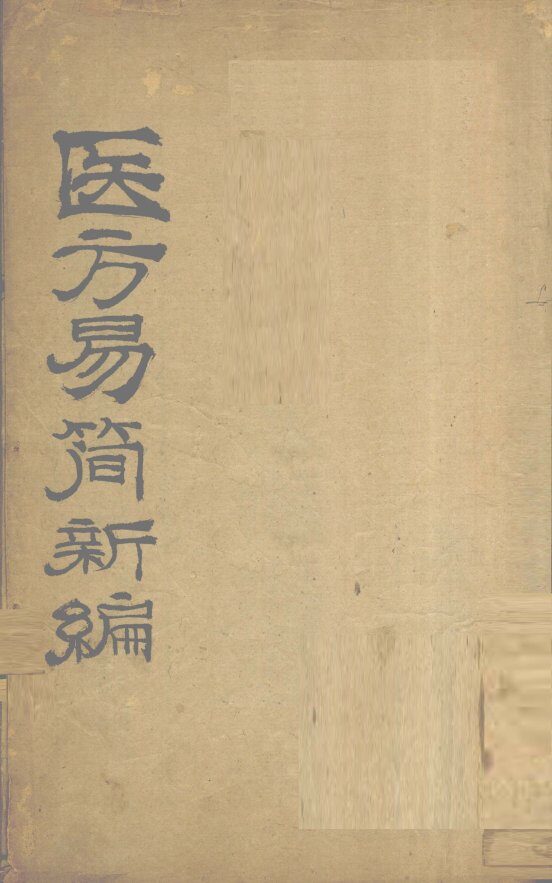 医方易简新編